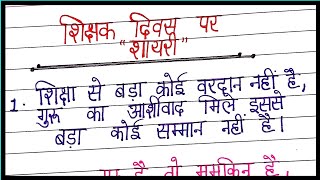 शिक्षक दिवस पर
"शायरी"
1. शिक्षा से बड़ा कोई वरदान नहीं है,
गुरू का आर्शीवाद मिले इससे
बड़ा कोई सम्मान नहीं है।
है तो ममकिन है,